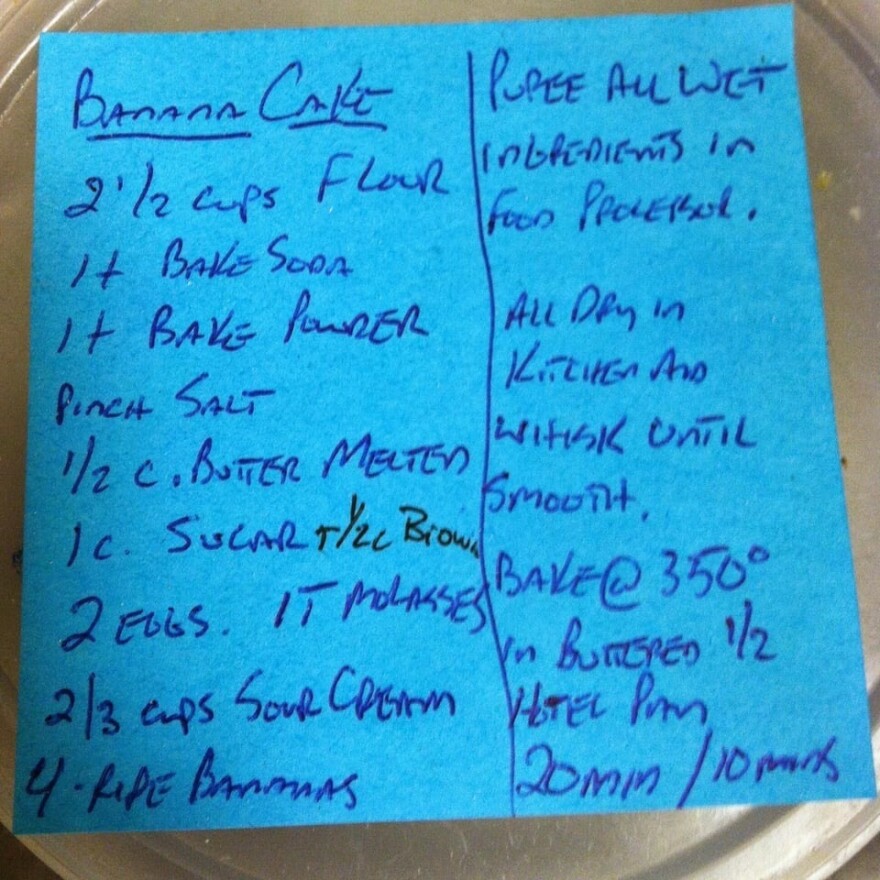 BANANA CAKE
2 1/2 cups FLOUR
1t BAKE SODA
1t BAKE POWDER
PINCH SALT
1/2 C. BUTTER MELTED
1c. SUGAR + 1/2c Brown
2 EGGS. 1T MOLASSES
2/3 cups SOUR CREAM
4 - RIPE BANANAS
PUREE ALL WET
INGREDIENTS IN
FOOD PROCESSOR.
ALL DRY IN
KITCHEN AID
WHISK UNTIL
SMOOTH.
BAKE @ 350°
IN BUTTERED 1/2
HOTEL PAN
20 min / 10 mins